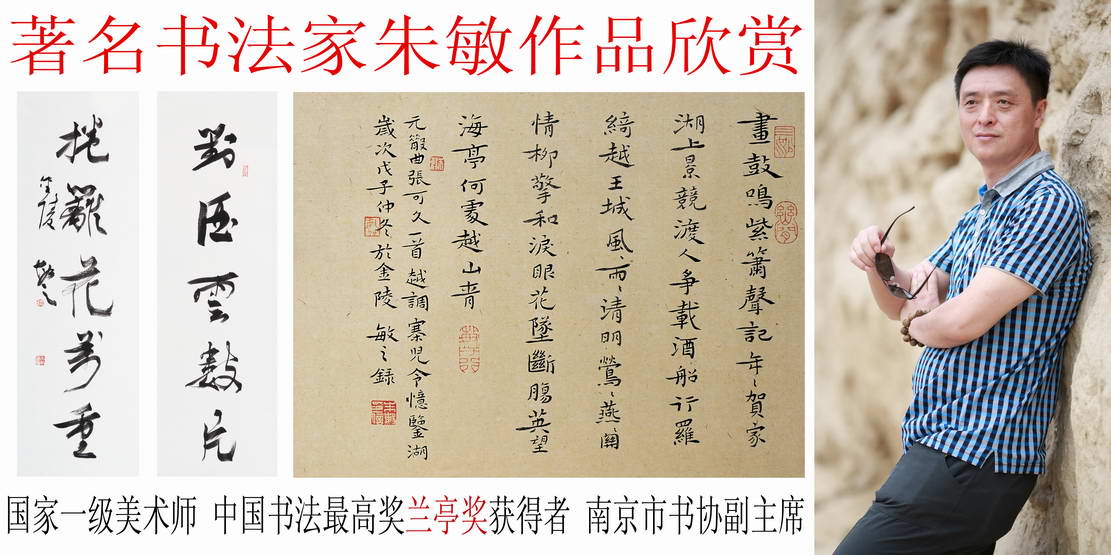 著名书法家朱敏作品欣赏
畫鼓鳴紫簫聲記年〻賀家
湖上景競渡人爭載酒船行羅
綺越王城風〻雨〻清明鶯〻燕〻關
情柳擎和淚眼花墜斷腸英望
海亭何處越山青
元散曲張可久一首 越調寨兒令憶鑒湖
歲次戊子仲冬於金陵 敏之錄
對酒雲數片
捲簾花萬重
金陵 敏之
国家一级美术师 中国书法最高奖兰亭奖获得者 南京市书协副主席